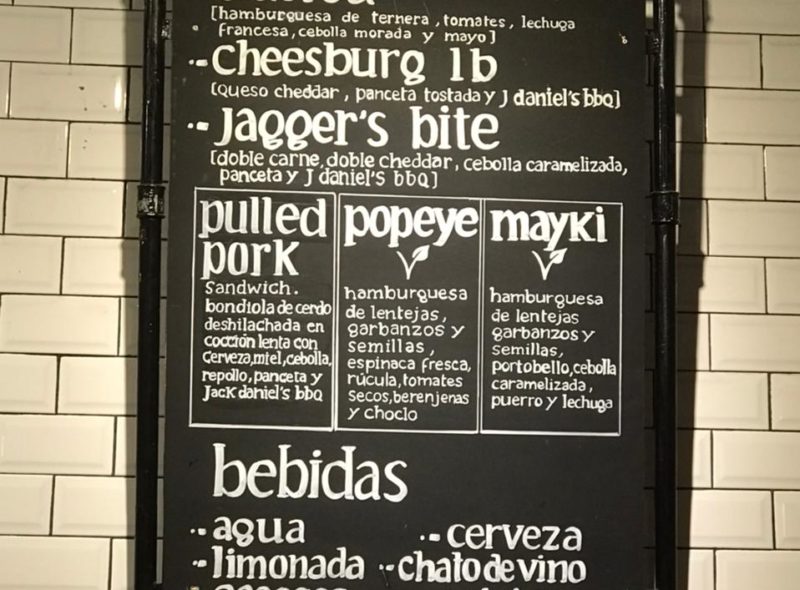 [hamburguesa de ternera, tomates, lechuga
francesa, cebolla morada y mayo]
·-cheesburg lb
[Queso cheddar, panceta tostada y J daniel's bbq]
·-Jagger's bite
[doble carne, doble cheddar, cebolla caramelizada,
panceta y J daniel's bbq]
pulled
pork
sandwich.
bondiola de cerdo
deshilachada en
cocción lenta con
cerveza, miel, cebolla,
repollo, panceta y
Jack daniel's bbq
popeye
hamburguesa
de lentejas,
garbanzos y
semillas,
espinaca fresca,
rúcula, tomates
secos, berenjenas
y choclo
mayki
hamburguesa
de lentejas
garbanzos y
semillas,
portobello, cebolla
caramelizada,
puerro y lechuga
bebidas
·-agua
·-cerveza
·-limonada
·-chato de vino